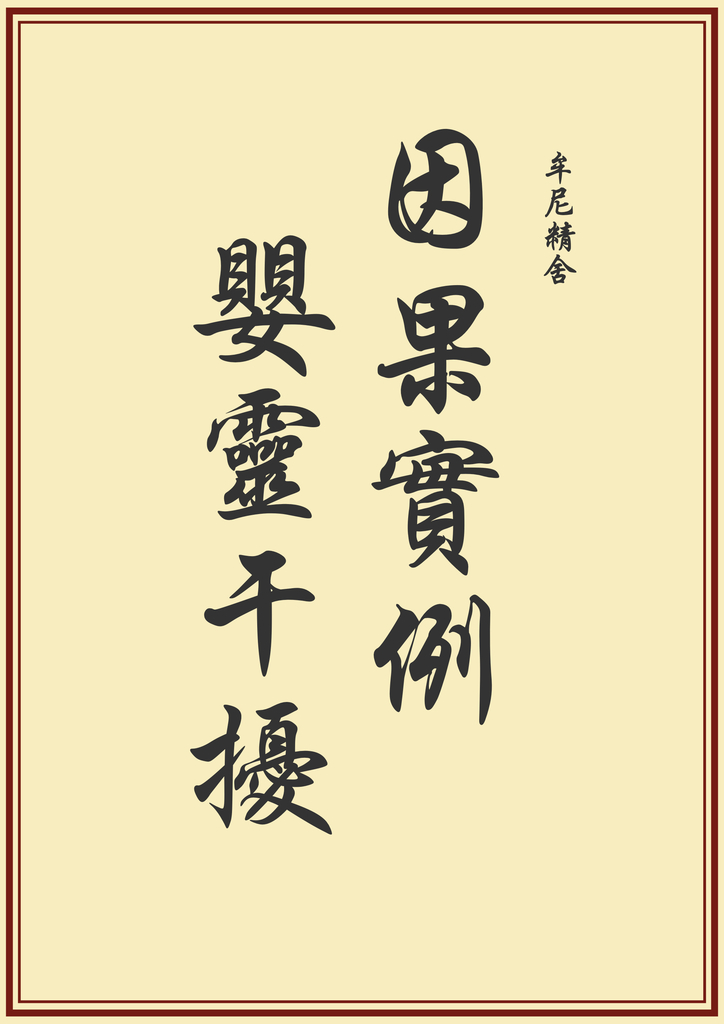 牟尼精舍
因果實例
嬰靈干擾